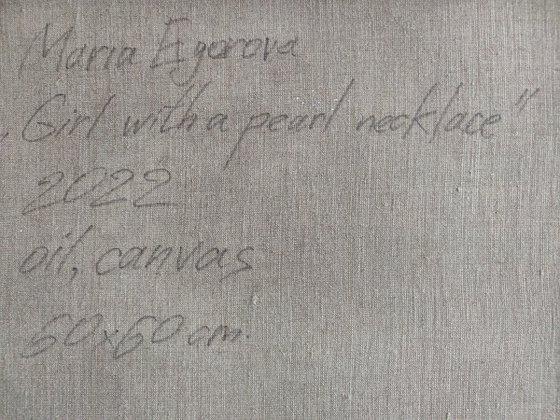 Maria Egorova
„Girl with a pearl necklace"
2022
oil, canvas
60x60 cm.